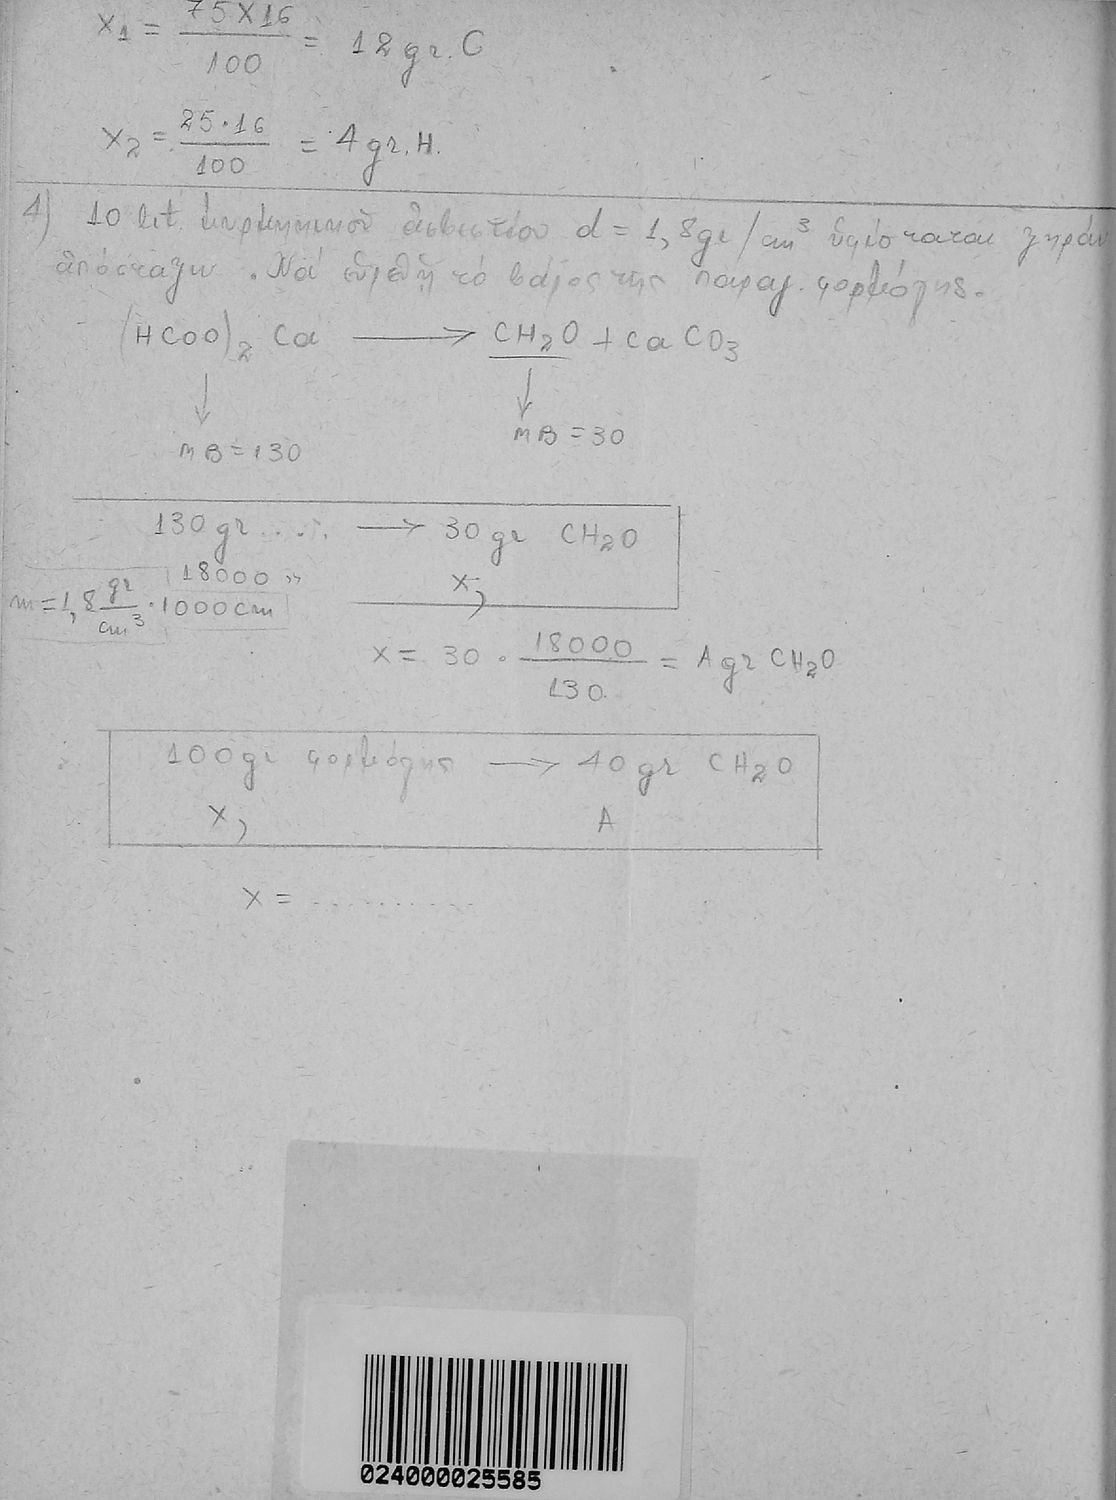 x₁ = 75×16 / 100 = 12 gr. C
x₂ = 25·16 / 100 = 4 gr. H.
4) 10 lit. μυρμηκικοῦ ἀσβεστίου d = 1,8 gr/cm³ ὑφίσταται ξηράν
ἀπόσταξιν. Νά εὑρεθῇ τό βάρος της παραγ. φορμόλης.
(HCOO)₂ Ca ⟶ CH₂O + CaCO₃
↓ ↓
MB = 130 MB = 30
130 gr ..... ⟶ 30 gr CH₂O
18000 » x;
m = 1,8 gr/cm³ · 1000 cm
x = 30 · 18000 / 130 = A gr CH₂O
100 gr φορμόλης ⟶ 40 gr CH₂O
x; A
x = ..........
024000025585